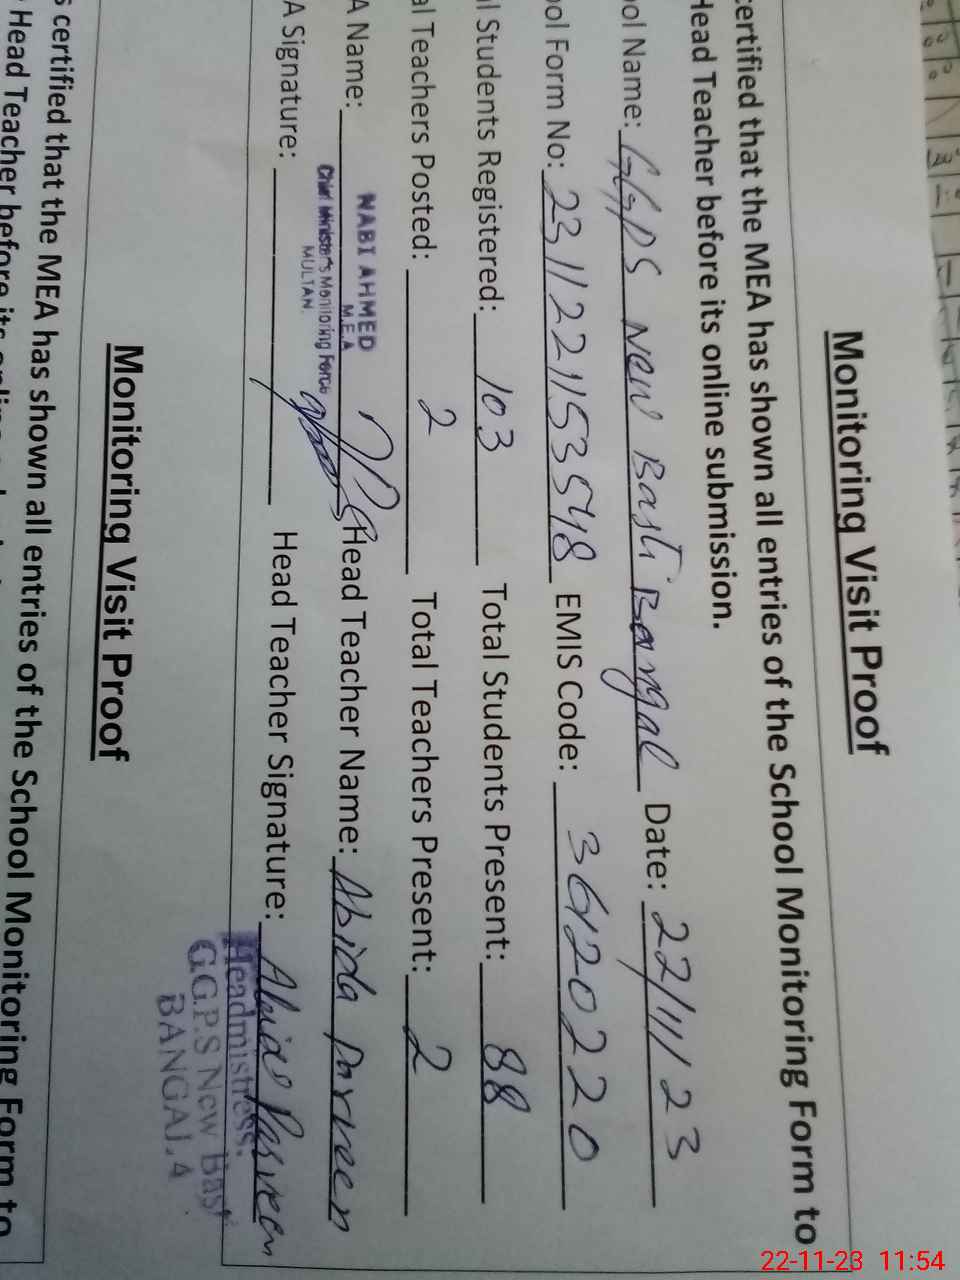 Monitoring Visit Proof
certified that the MEA has shown all entries of the School Monitoring Form to
Head Teacher before its online submission.
ool Name: GGPS New Basti Bangal Date: 22/11/23
ool Form No: 2311221153548 EMIS Code: 36120220
l Students Registered: 103 Total Students Present: 88
al Teachers Posted: 2 Total Teachers Present: 2
A Name: NABI AHMED Head Teacher Name: Abida Parveen
M.E.A
Chief Minister's Monitoring Force
MULTAN.
A Signature: Head Teacher Signature: Abida Parveen
Headmistress.
G.G.P.S New Bast
BANGAL.A
Monitoring Visit Proof
s certified that the MEA has shown all entries of the School Monitoring Form to
Head Teacher before its online
22-11-23 11:54